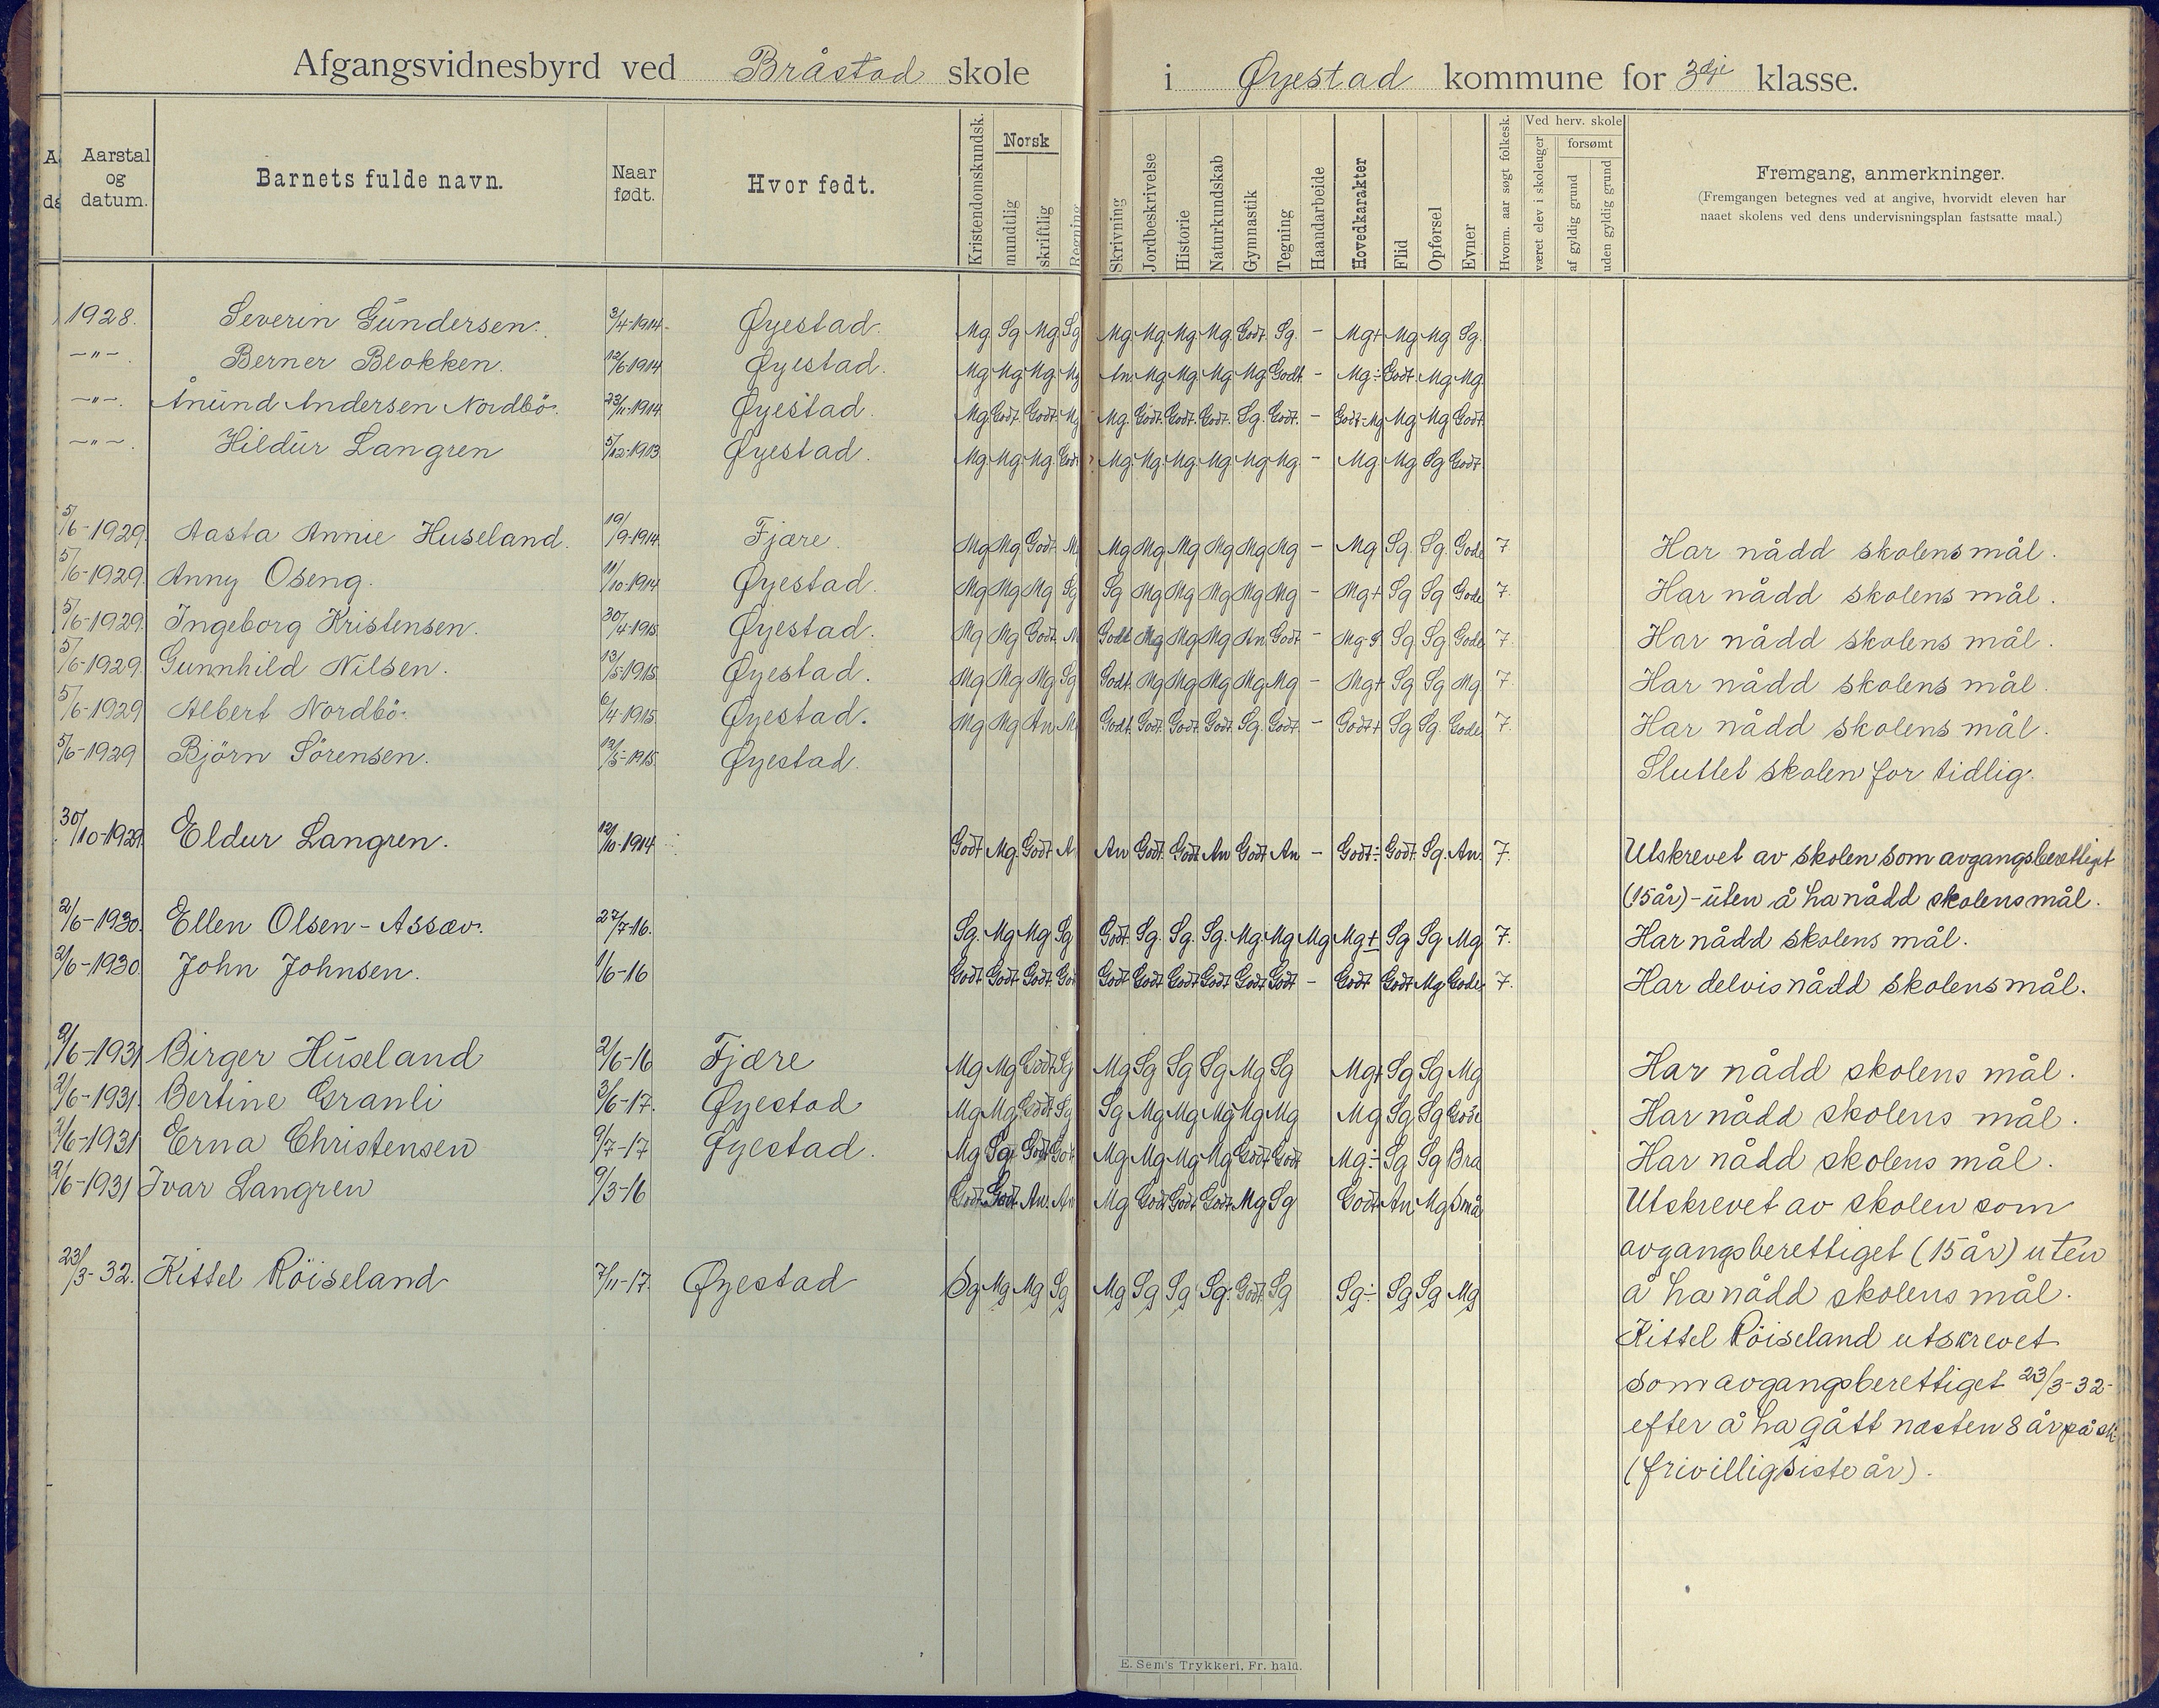 Afgangsvidnesbyrd ved Bråstad skole i Øyestad kommune for 3dje klasse.
Aarstal og datum. Barnets fulde navn. Naar født. Hvor født. Kristendomskundsk. Norsk mundtlig skriftlig Regning Skrivning Jordbeskrivelse Historie Naturkundskab Gymnastik Tegning Haandarbeide Hovedkarakter Flid Opførsel Evner Hvorm. aar søgt folkesk. Ved herv. skole været elev i skoleuger forsømt af gyldig grund uden gyldig grund Fremgang, anmerkninger.
(Fremgangen betegnes ved at angive, hvorvidt eleven har
naaet skolens ved dens undervisningsplan fastsatte maal.)
1928. Severin Gundersen. 3/4-1914. Øyestad. Mg Sg Mg Sg Mg Mg Mg Mg Godt Sg. - Mg+ Mg Mg Sg.
-"-. Berner Blokken. 12/6-1914 Øyestad. Mg Mg Mg Mg An. Mg Mg Mg Mg Godt - Mg÷ Godt Mg Mg
-"-. Ånund Andersen Nordbö. 23/11-1914. Øyestad. Mg Godt. Godt. Mg Mg. Godt. Godt. Godt. Sg. Godt. - Godt-Mg Mg Mg Godt
-"-. Hildur Langren 5/12-1913 Øyestad. Mg Mg Mg Godt Mg Mg Mg Mg Mg Mg - Mg Mg Sg Godt
5/6-1929. Aasta Annie Huseland. 19/9-1914. Fjære. Mg Mg Godt. M Mg Mg Mg Mg Mg Mg - Mg Sg. Sg. Gode 7 Har nådd skolens mål.
5/6-1929. Anny Oseng. 11/10-1914 Øyestad. Mg Mg Mg Sg Sg Mg Mg Mg Mg Mg - Mg+ Sg Sg Gode 7. Har nådd skolens mål.
5/6-1929. Ingeborg Kristensen. 30/4-1915 Øyestad. Mg Mg Godt. M Godt. Mg Mg Mg An. Godt - Mg-G Sg Sg Gode 7. Har nådd skolens mål.
5/6-1929. Gunnhild Nilsen. 13/5-1915 Øyestad. Mg Mg Mg Sg Godt. Mg Mg Mg Mg Mg - Mg+ Sg Sg Mg 7. Har nådd skolens mål.
5/6-1929 Albert Nordbö. 6/4-1915 Øyestad. Mg Mg An M Godt. Godt. Godt. Godt. Sg. Godt. - Godt+ Sg Sg. Gode 7. Har nådd skolens mål.
5/6-1929 Björn Sörensen. 12/5-1915. Øyestad. Sluttet skolen for tidlig.
30/10-1929 Eldur Langren. 12/10-1914 Godt Mg. Godt A An Godt. Godt An Godt An - Godt÷ Godt. Sg. An. 7. Utskrevet av skolen som avgangsberettiget
(15 år) - uten å ha nådd skolens mål.
2/6-1930. Ellen Olsen-Assæv. 27/7-16. Sg. Mg Mg Sg Godt. Sg. Sg. Sg. Mg. Mg Mg Mg+ Sg Sg Mg 7. Har nådd skolens mål.
2/6-1930. John Johnsen. 1/6-16 Godt Godt Godt. God Godt Godt Godt Godt Godt Godt - Godt Godt Mg Gode 7. Har delvis nådd skolens mål.
2/6-1931 Birger Huseland 2/6-16 Fjære Mg Mg Godt Sg Mg Sg Sg Sg Mg Sg Mg+ Sg Sg Mg Har nådd skolens mål.
2/6-1931. Bertine Granli 3/6-17. Øyestad Mg Mg Godt Sg Sg Mg Mg Mg Mg Mg Mg Sg Sg Gode Har nådd skolens mål.
2/6-1931 Erna Christensen 9/7-17 Øyestad. Mg Sg Godt Got Mg Mg Mg Mg Godt Godt Mg÷ Sg Sg Bra Har nådd skolens mål.
2/6-1931 Ivar Langren 9/3-16 Godt Godt An. An Mg Godt Godt Godt Mg Sg Godt An Mg Små Utskrevet av skolen som
avgangsberettiget (15 år) uten
å ha nådd skolens mål.
23/3-32. Kittel Röiseland 7/11-17. Øyestad Sg Mg Mg Sg Mg Sg Sg Sg. Godt. Sg Sg÷ Sg Sg Mg
Kittel Röiseland utskrevet
som avgangsberettiget 23/3-32-
efter å ha gått næsten 8 år på sk.
(frivillig siste år).
E. Sem's Trykkeri, Fr.hald.